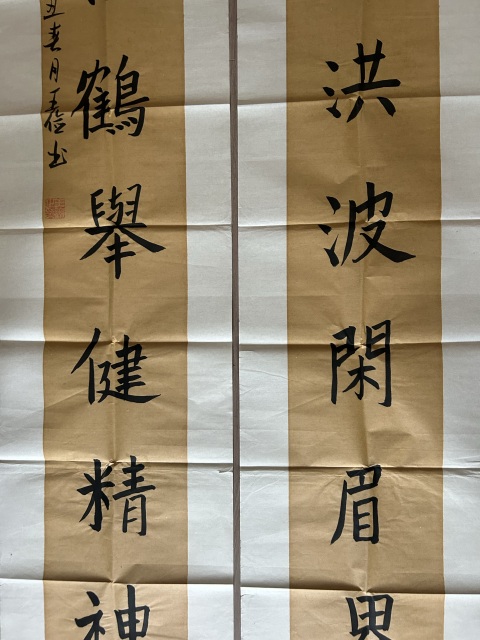 洪波閑眉界
鶴舉健精神
丑春月王書